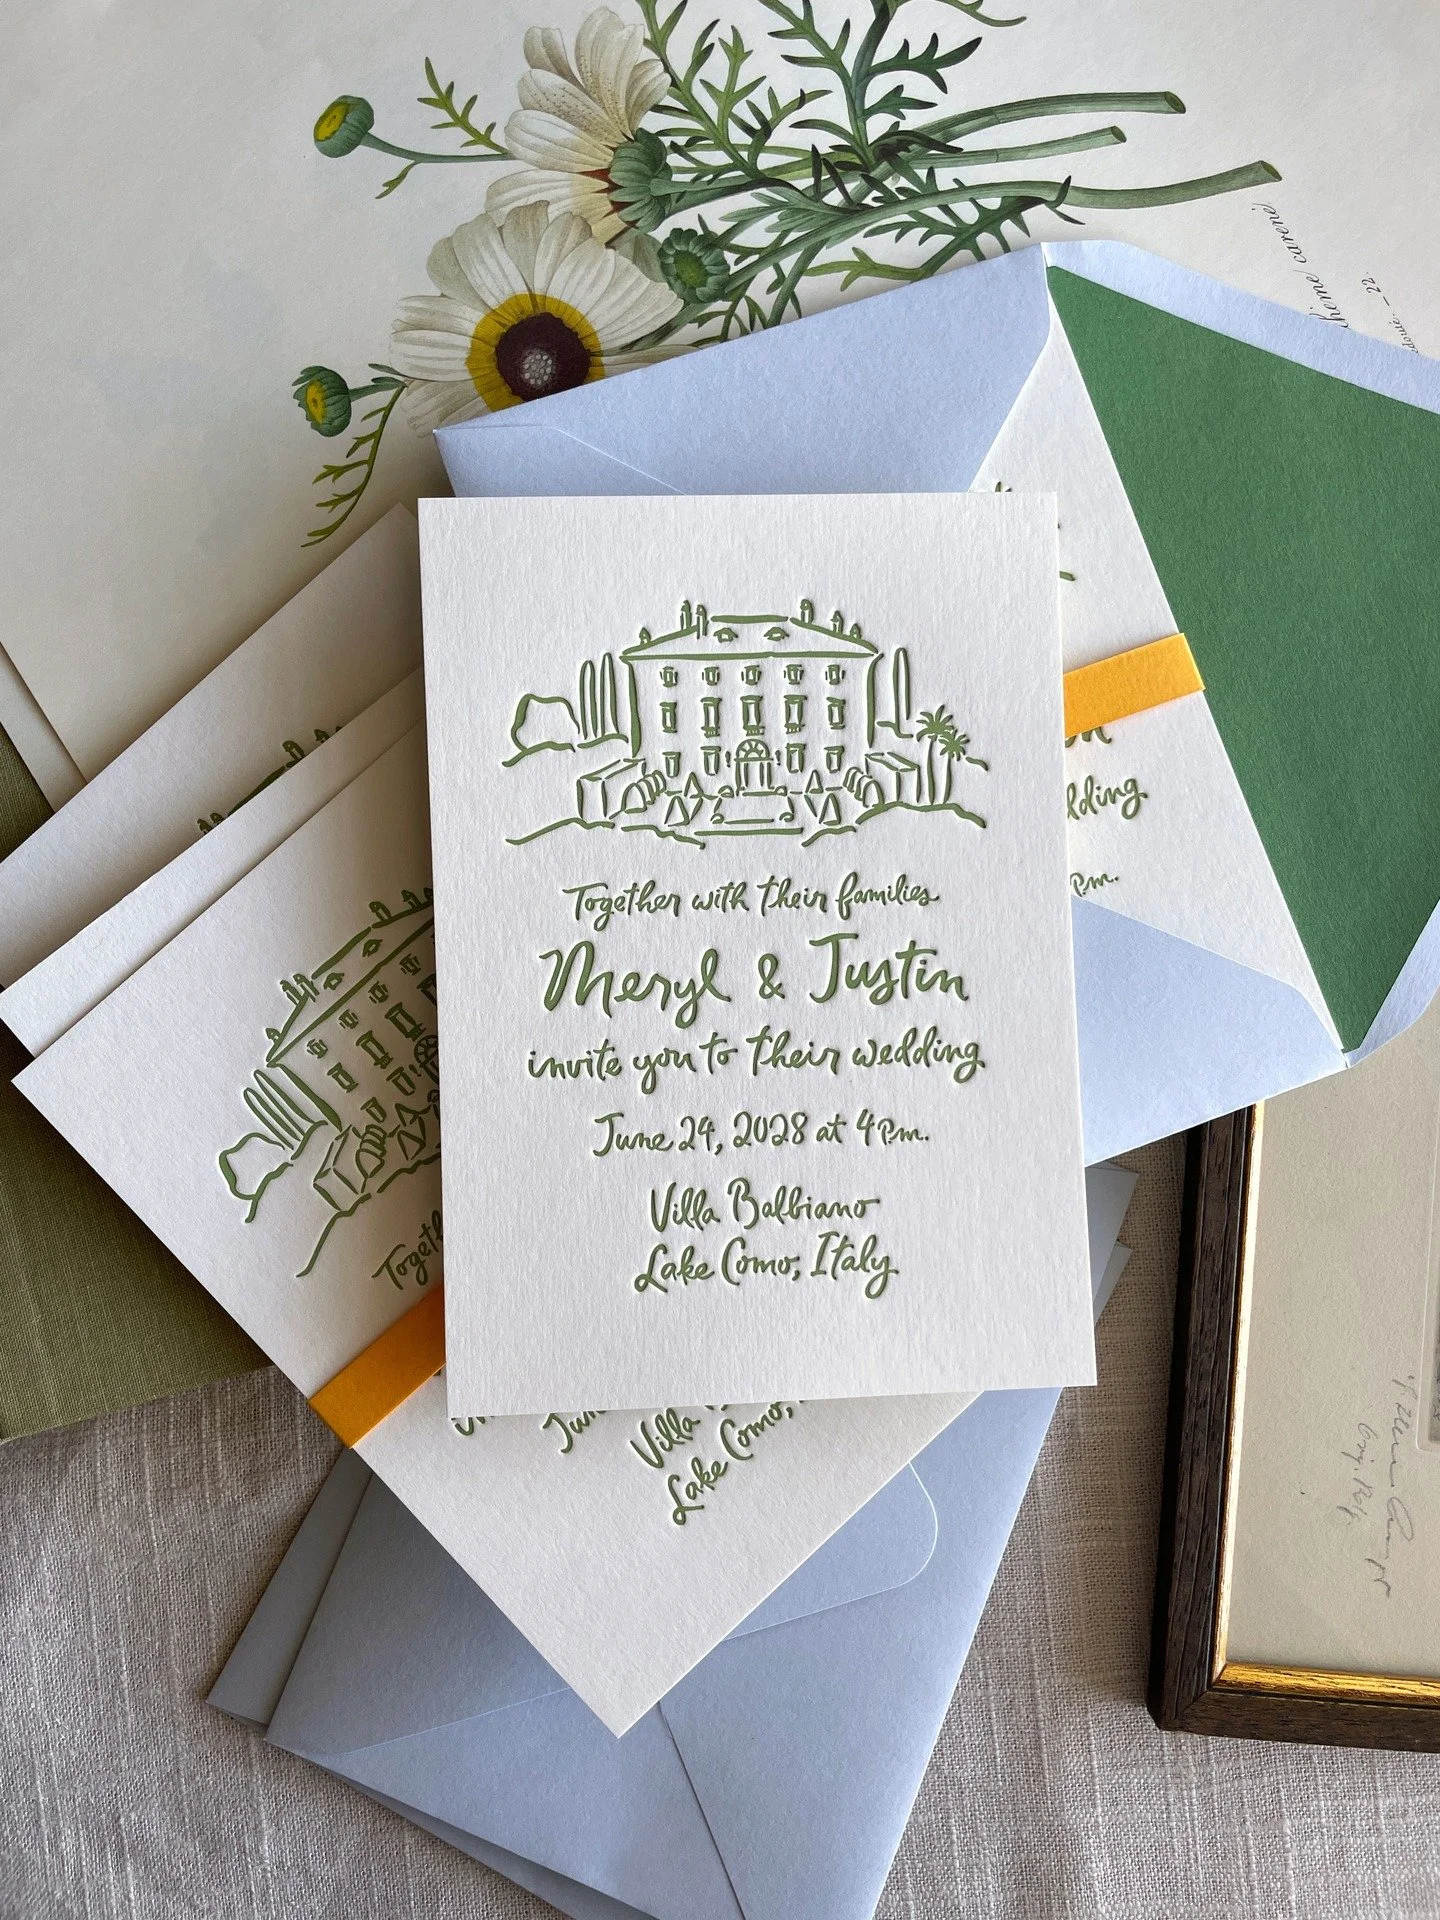 Together with their families
Meryl & Justin
invite you to their wedding
June 24, 2028 at 4 P.m.
Villa Balbiano
Lake Como, Italy
lding
P.m.
Togeth
June
Villa
Lake Como,